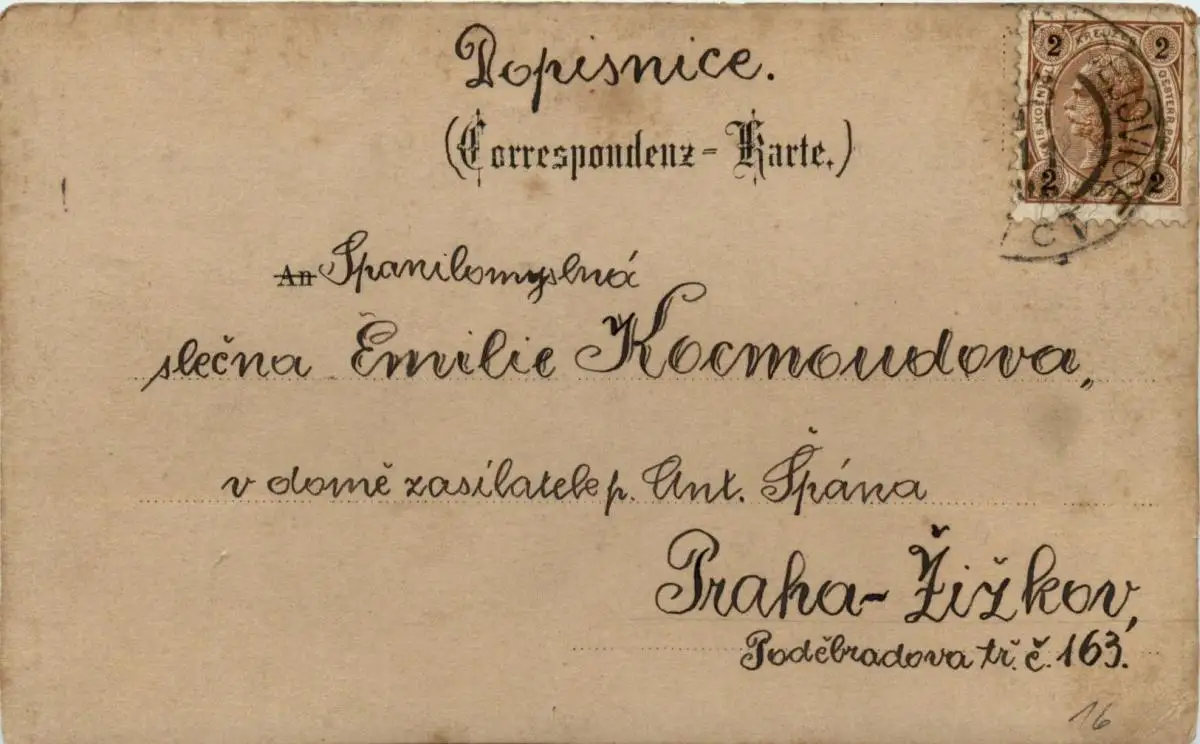 Dopisnice.
(Correspondenz-Karte.)
An Spanilomyslná
slečna Emilie Kocmoudova,
v domě zasílatele p. Ant. Špána
Praha-Žižkov,
Poděbradova tř. č. 163.
16
2 KREUZER 2
2 2